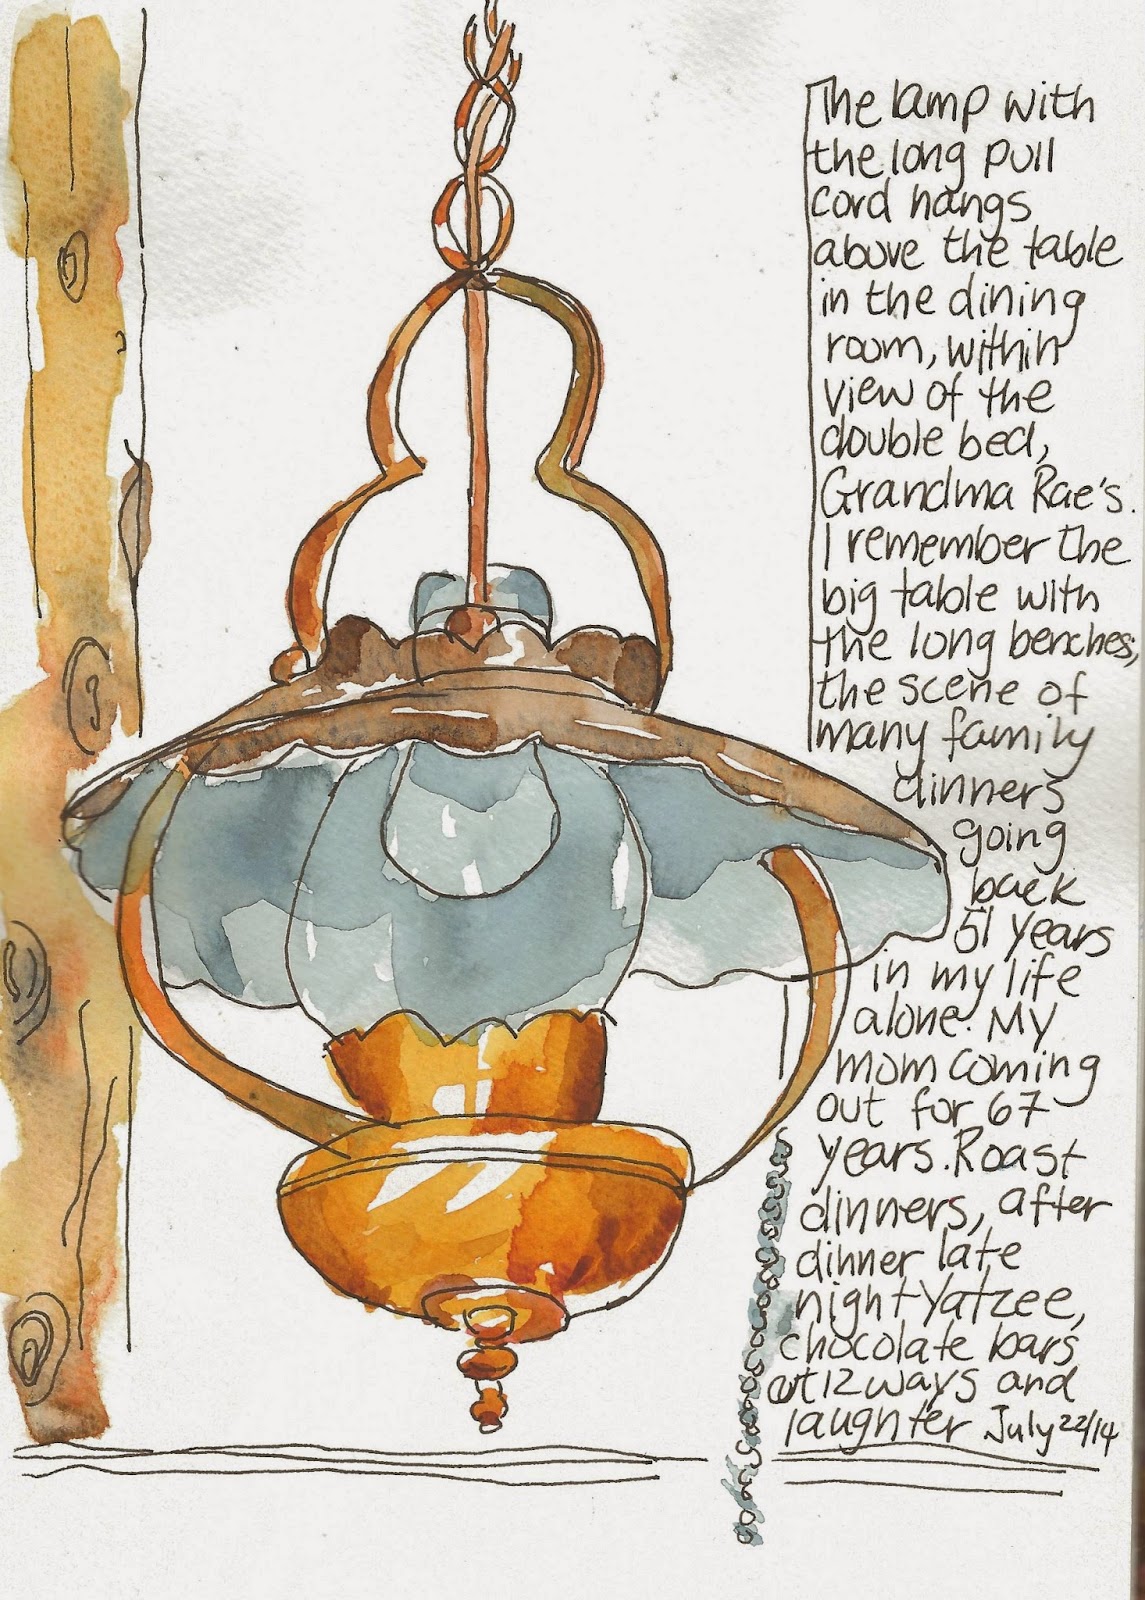 The lamp with
the long pull
cord hangs
above the table
in the dining
room, within
view of the
double bed,
Grandma Rae's.
I remember the
big table with
the long benches,
the scene of
many family
dinners
going
back
51 years
in my life
alone. My
mom coming
out for 67
years. Roast
dinners, after
dinner late
night Yatzee,
chocolate bars
cut 12 ways and
laughter July 22/14